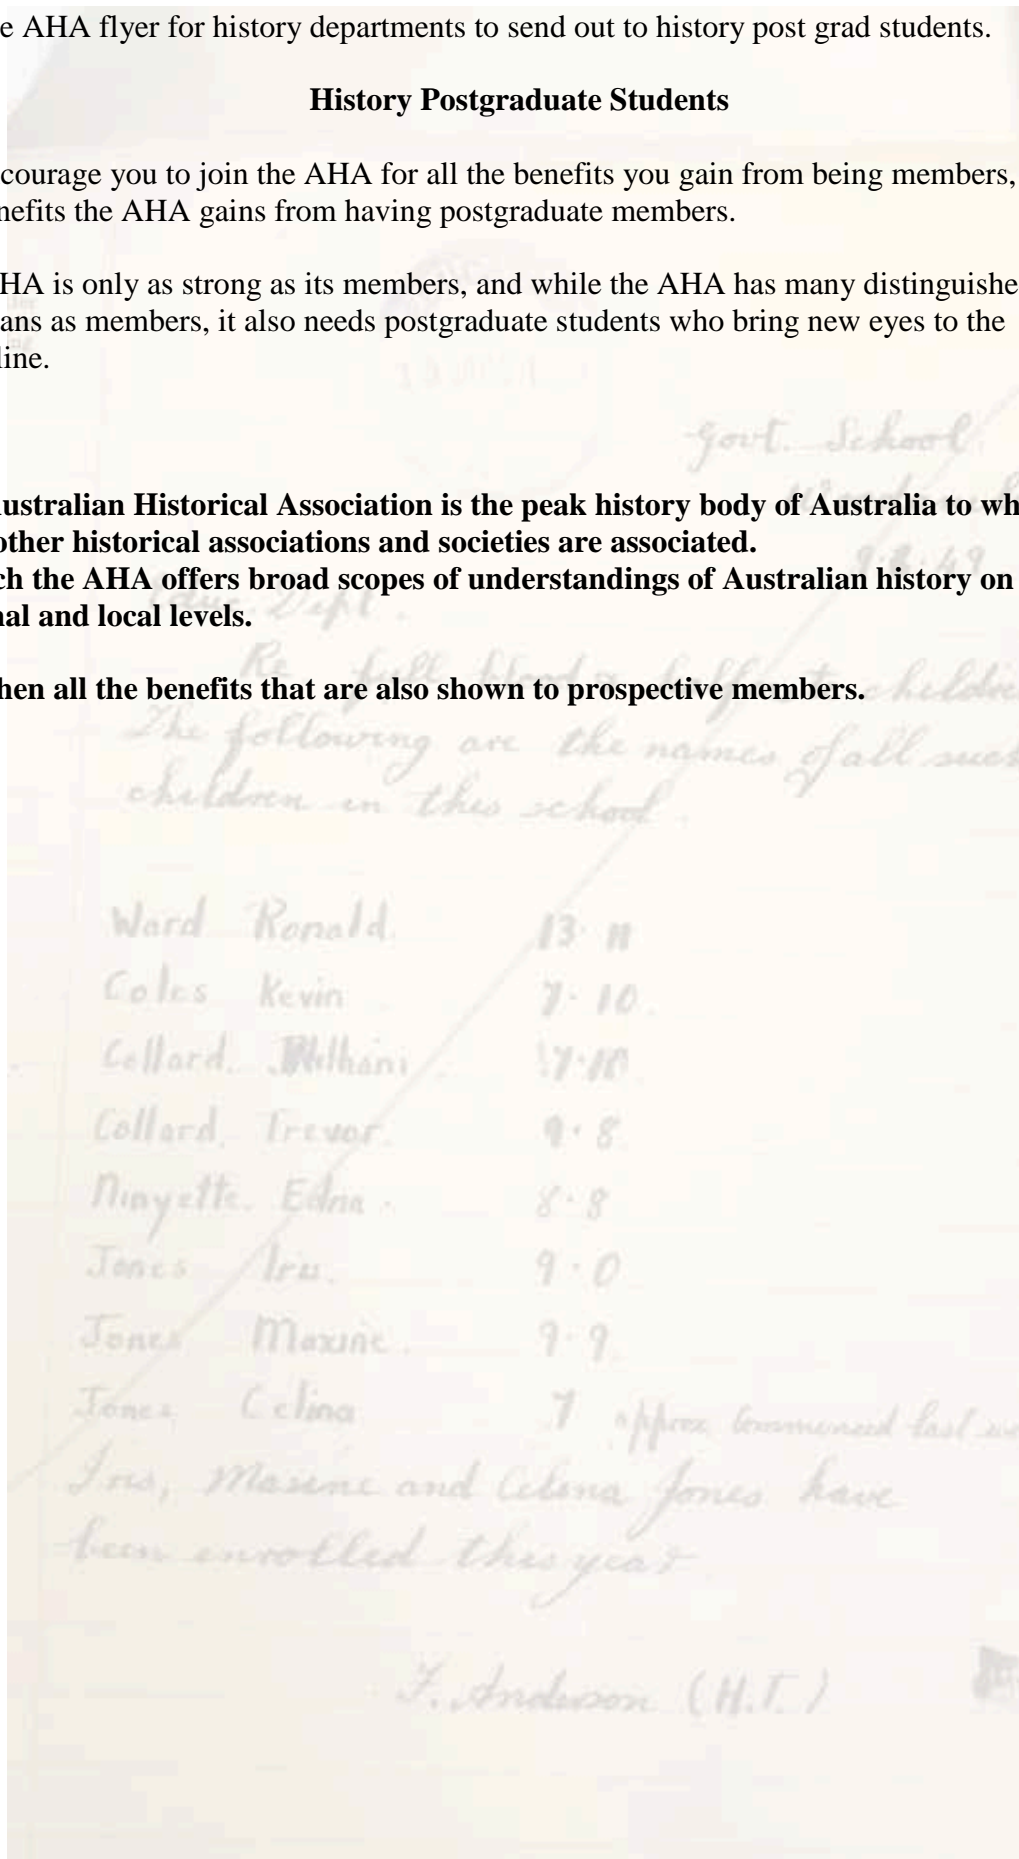 e AHA flyer for history departments to send out to history post grad students.
History Postgraduate Students
courage you to join the AHA for all the benefits you gain from being members,
nefits the AHA gains from having postgraduate members.
HA is only as strong as its members, and while the AHA has many distinguishe
ans as members, it also needs postgraduate students who bring new eyes to the
line.
Govt. School
ustralian Historical Association is the peak history body of Australia to wh
other historical associations and societies are associated.
9.8.49
ch the AHA offers broad scopes of understandings of Australian history on
Educ. Dept.
nal and local levels.
Re full blood & half caste children
hen all the benefits that are also shown to prospective members.
The following are the names of all such
children in this school.
Ward Ronald. 13. 11
Coles Kevin 7. 10.
Collard. William 7.10
Collard. Trevor. 9. 8
Ninyette. Edna. 8. 8
Jones Iris. 9. 0
Jones Maxine. 9. 9.
Jones Celina 7 approx. Commenced last
Iris, Maxine and Celina Jones have
been enrolled this year
F. Anderson (H.T.)